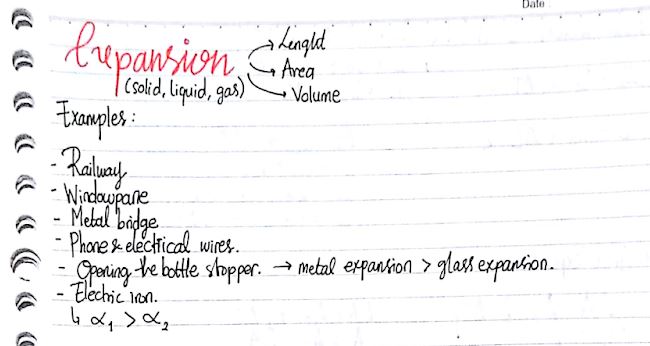 Date
Expansion → Length
→ Area
(solid, liquid, gas) → Volume
Examples:
- Railway
- Windowpane
- Metal bridge
- Phone & electrical wires.
- Opening the bottle stopper. → metal expansion > glass expansion.
- Electric iron.
↳ α₁ > α₂